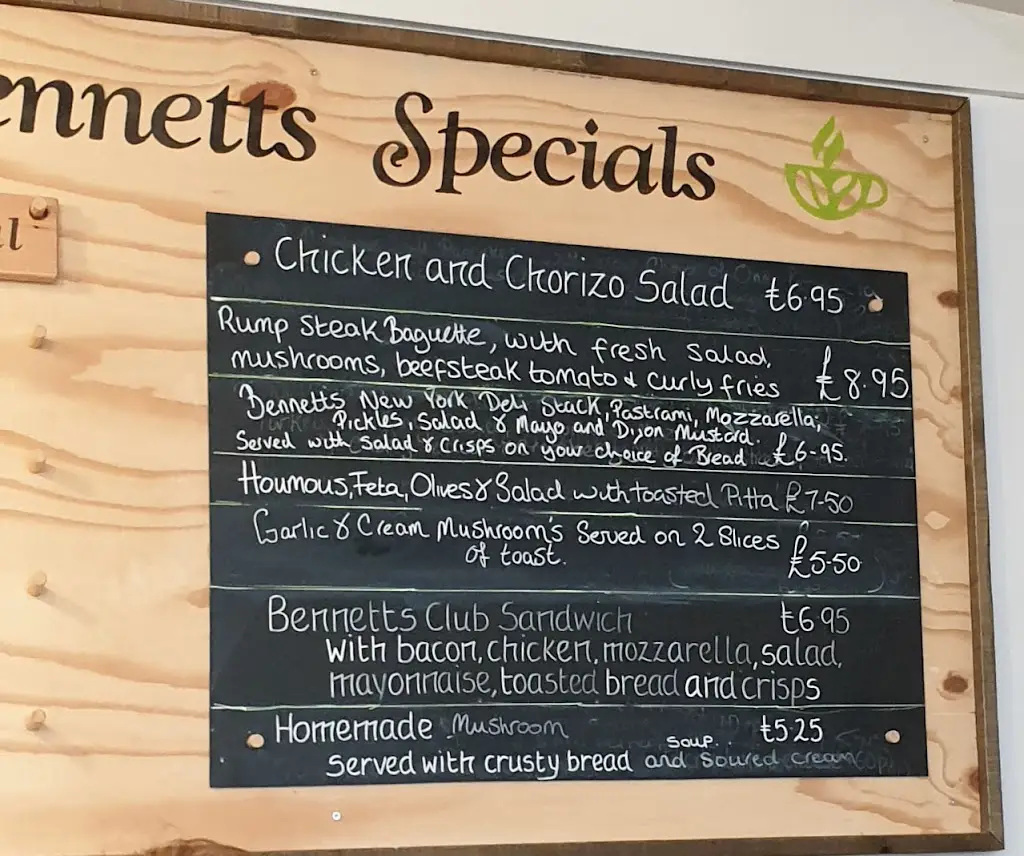 ennetts Specials
Chicken and Chorizo Salad £6.95
Rump Steak Baguette, with fresh salad,
mushrooms, beefsteak tomato & curly fries £8.95
Bennetts New York Deli Stack, Pastrami, Mozzarella,
Pickles, Salad & Mayo and Dijon Mustard.
Served with Salad & Crisps on your choice of Bread £6-95.
Houmous, Feta, Olives & Salad with toasted Pitta £7-50
Garlic & Cream Mushroom's Served on 2 Slices
of toast. £5-50
Bennetts Club Sandwich £6.95
with bacon, chicken, mozzarella, salad,
mayonnaise, toasted bread and crisps
Homemade Mushroom soup.. £5.25
served with crusty bread and soured cream